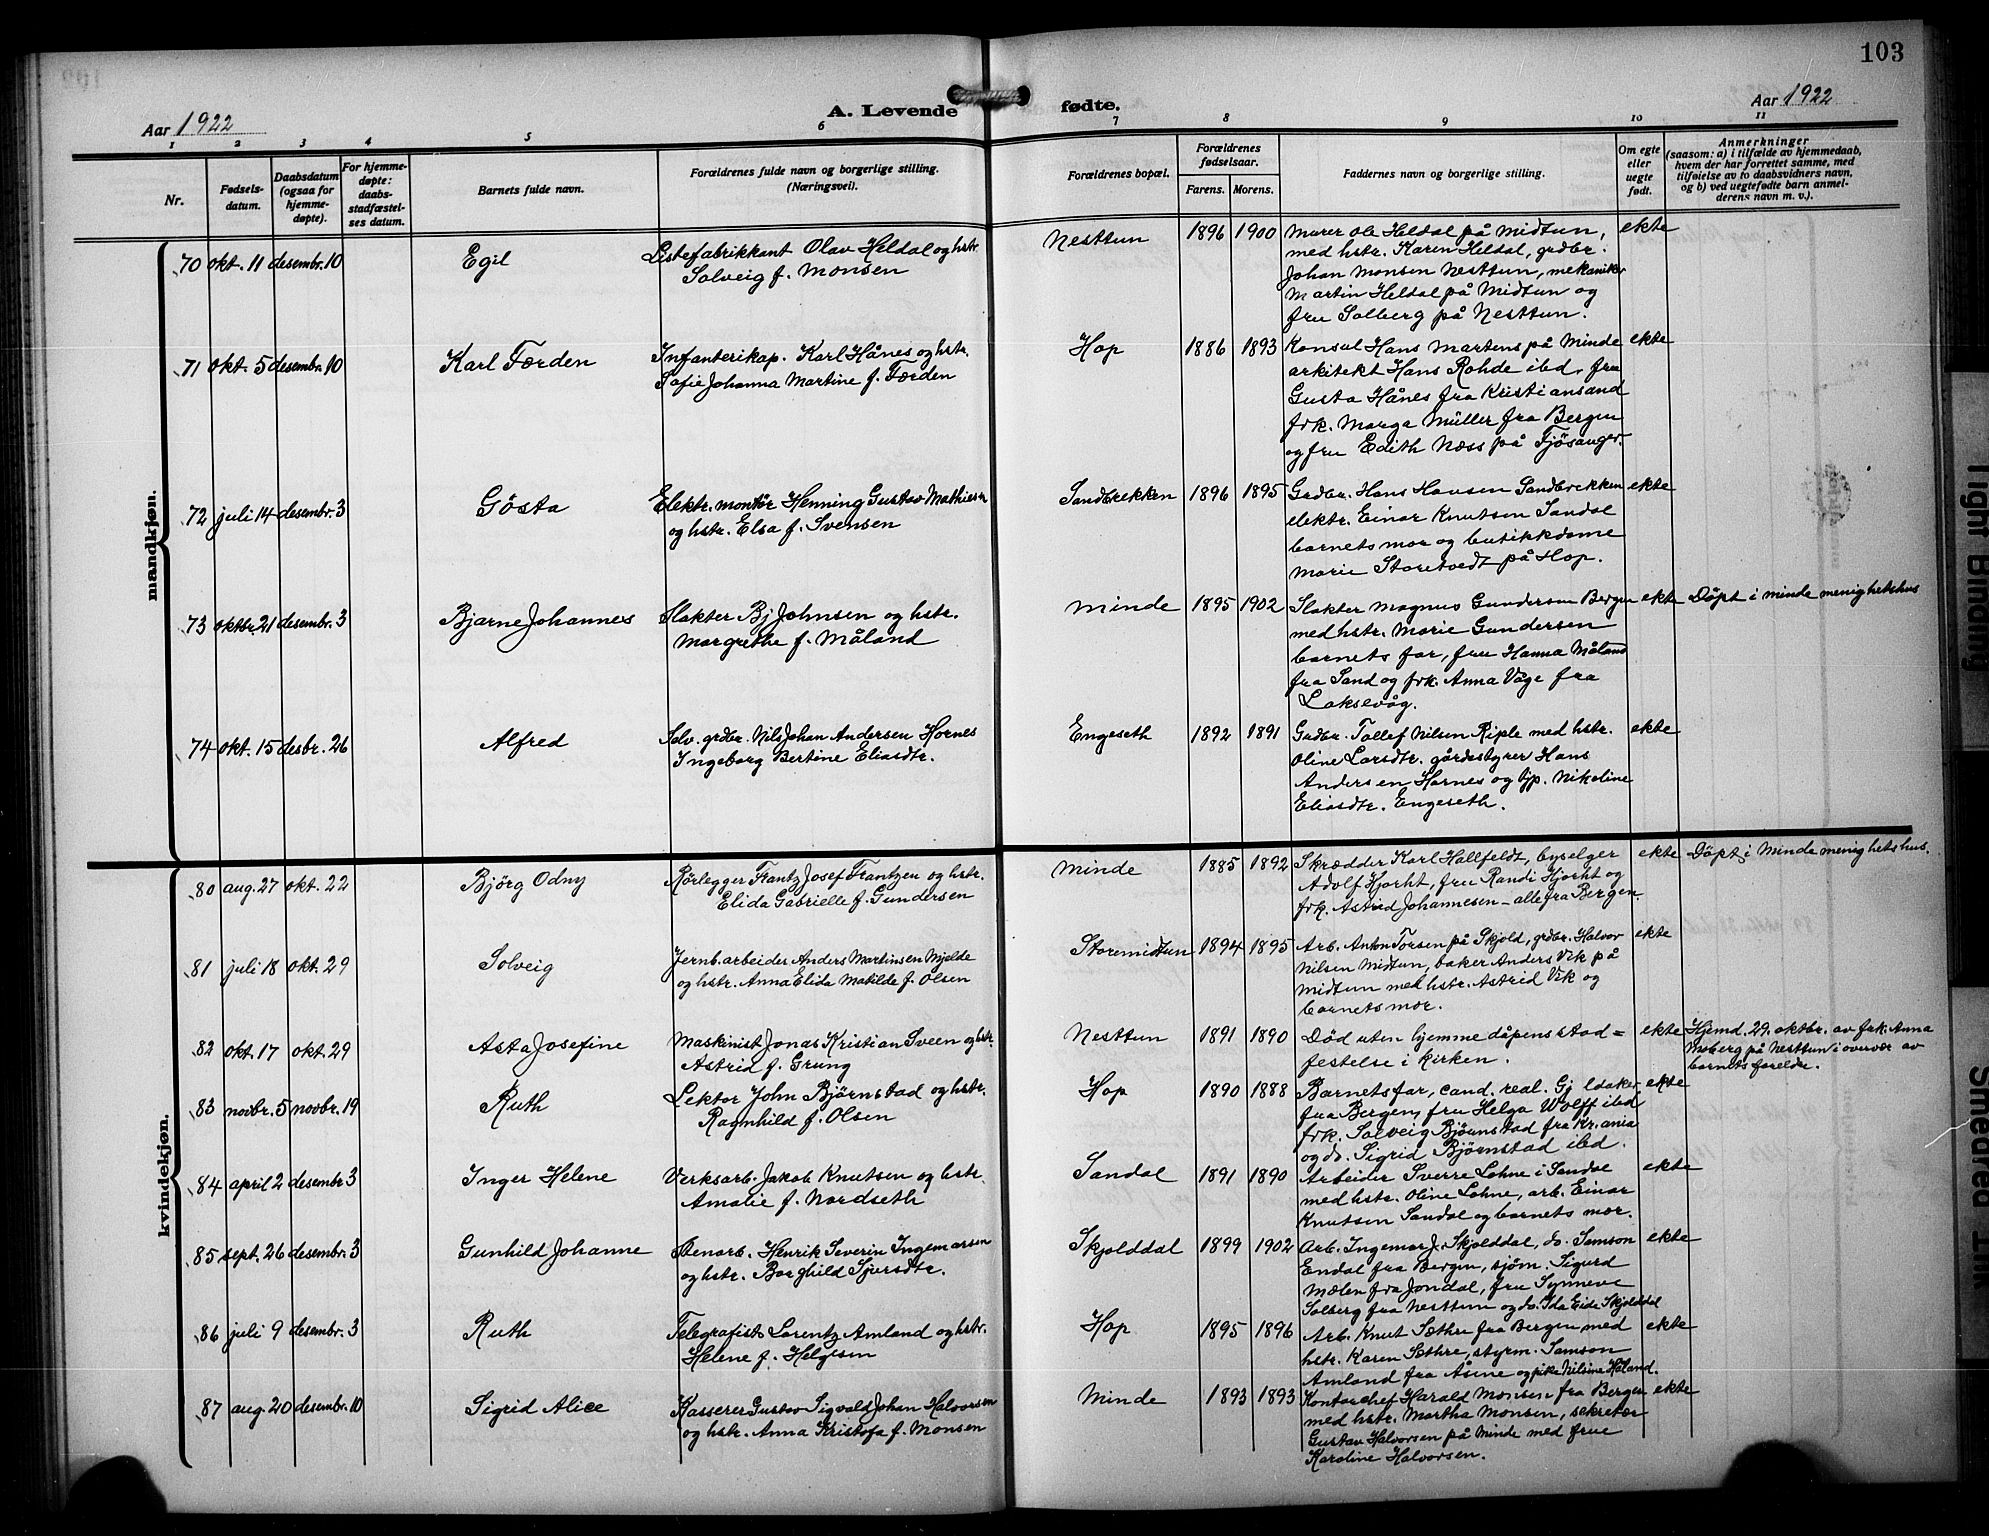 103
Aar 1922
A. Levende
fødte.
Aar 1922
1 2 3 4 5 6 7 8 9 10 11
Nr.
Fødsels-
datum.
Daabsdatum
(ogsaa for
hjemme-
døpte).
For hjemme-
døpte:
daabs-
stadfæstel-
ses datum.
Barnets fulde navn.
Forældrenes fulde navn og borgerlige stilling.
(Næringsvei).
Forældrenes bopæl.
Forældrenes
fødselsaar.
Farens. Morens.
Faddernes navn og borgerlige stilling.
Om egte
eller
uegte
født.
Anmerkninger
(saasom: a) i tilfælde av hjemmedaab,
hvem der har forrettet samme, med
tilføielse av to daabsvidners navn,
og b) ved uegtefødte barn anmel-
derens navn m. v.).
mandkjøn.
70 okt. 11 desembr. 10
Egil
Listefabrikkant Olav Heldal og hstr.
Solveig f. Monsen
Nesttun
1896 1900
Murer Ole Heldal på Midtun,
med hstr. Karen Heldal, grdbr.
Johan Monsen Nesttun, mekaniker
Martin Heldal på Midtun og
fru Solberg på Nesttun.
ekte
71 okt. 5 desembr. 10
Karl Færden
Infanterikap. Karl Hånes og hstr.
Sofie Johanna Martine f. Færden
Hop
1886 1893
Konsul Hans Martens på Minde
arkitekt Hans Rohde ibd, fru
Gusta Hånes fra Kristiansand
frk. Marga Müller fra Bergen
og fru Edith Næss på Fjösanger.
ekte
72 juli 14 desembr. 3
Gösta
Elektr. montör Henning Gustav Mathiesen
og hstr. Elsa f. Svensen
Sandbrekken
1896 1895
Grdbr. Hans Hansen Sandbrekken
elektr. Einar Knutsen Sandal
barnets mor og butikkdame
Marie Storetvedt på Hop.
ekte
73 oktbr. 21 desembr. 3
Bjarne Johannes
Slakter Bj Johnsen og hstr.
Margrethe f. Måland
Minde
1895 1902
Slakter Magnus Gundersen Bergen
med hstr. Marie Gundersen
barnets far, fru Hanna Måland
fra Sand og frk. Anna Våge fra
Laksevåg.
ekte
Döpt i Minde menighetshus
74 okt. 15 desbr. 26
Alfred
Selv. grdbr. Nils Johan Andersen Hornes
Ingeborg Bertine Eliasdtr.
Engeseth
1892 1891
Grdbr. Tollef Nilsen Riple med hstr.
Oline Larsdtr. gårdsstyrer Hans
Andersen Hornes og tjp. Nikoline
Eliasdtr. Engeseth.
ekte
kvindekjøn.
80 aug. 27 okt. 22
Björg Odny
Rörlegger Frantz Josef Frantzen og hstr.
Elida Gabrielle f. Gundersen
Minde
1885 1892
Skrædder Karl Hallfeldt, byselger
Adolf Hjorht, fru Randi Hjorht og
frk. Astrid Johannesen – alle fra Bergen.
ekte
Döpt i Minde menighetshus.
81 juli 18 okt. 29
Solveig
Jernb. arbeider Anders Martinsen Mjelde
og hstr. Anna Elida Matilde f. Olsen
Storemidtun
1894 1895
Arb. Anton Torsen på Skjold, grdbr. Halvor
Nilsen Midtun, baker Anders Vik på
Midtun med hstr. Astrid Vik og
barnets mor.
ekte
82 okt. 17 okt. 29
Asta Josefine
Maskinist Jonas Kristian Sveen og hstr.
Astrid f. Grung
Nesttun
1891 1890
Död uten hjemme dåpens stad=
festelse i kirken.
ekte
Hjemd. 29. oktbr. av frk. Anna
Moberg på Nesttun i overvær av
barnets foreldre.
83 novbr. 5 novbr. 19
Ruth
Lektor John Björnstad og hstr.
Ragnhild f. Olsen
Hop
1890 1888
Barnets far, cand. real. Gj
fra Bergen, fru Helga Wolff ibd
frk. Solveig Björnstad fra Kr.ania
og do. Sigrid Björnstad ibd.
ekte
84 april 2 desembr 3
Inger Helene
Verksarb. Jakob Knutsen og hstr.
Amalie f. Nordseth
Sandal
1891 1890
Arbeider Sverre Lohne i Sandal
med hstr. Oline Lohne, arb. Einar
Knutsen Sandal og barnets mor.
ekte
85 sept. 26 desembr. 3
Gunhild Johanne
Stenarb. Henrik Severin Ingemarsen
og hstr. Borghild Sjursdtr.
Skjolddal
1899 1902
Arb. Ingemar J. Skjolddal, do. Samson
Endal fra Bergen, sjöm. Sigurd
Mælen fra Jondal, fru Synneve
Solberg fra Nesttun og do. Ida Eide Skjolddal
ekte
86 juli 9 desembr. 3
Ruth
Telegrafist Lorentz Amland og hstr.
Helene f. Helgesen
Hop
1895 1896
Arb. Knut Sæthre fra Bergen med
hstr. Karen Sæthre, styrm. Samson
Amland fra Åsine og pike Nilsine Håland.
ekte
87 aug. 20 desembr. 10
Sigrid Alice
Kasserer Gustav Sigvald Johan Halvorsen
og hstr. Anna Kristofa f. Monsen
Minde
1893 1893
Kontorchef Harald Monsen fra Bergen
med hstr. Martha Monsen, sekretær
Gustav Halvorsen på Minde med frue
Karoline Halvorsen.
ekte
Tight Binding
Smeared Ink